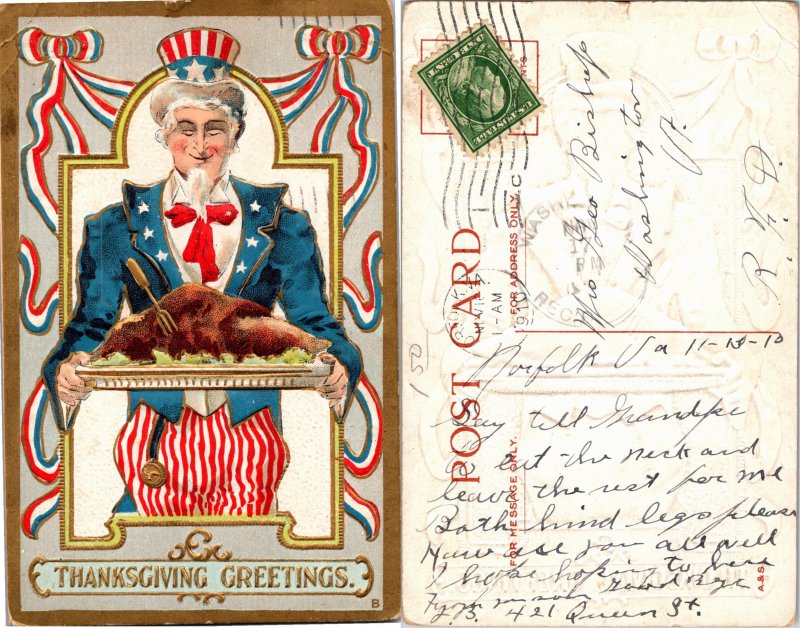 THANKSGIVING GREETINGS.
B
POST CARD
FOR ADDRESS ONLY.
FOR MESSAGE ONLY.
A&S
WASH
REC
1-AM
1910
150
Mrs Geo Bishop
Washington
Vt.
R. F. D.
Norfolk Va 11-10-10
Say tell Grandpa
to eat the neck and
leave the rest for me
Both hind legs please
How are you all well
I hope hoping to hear
From
421 Queen St.